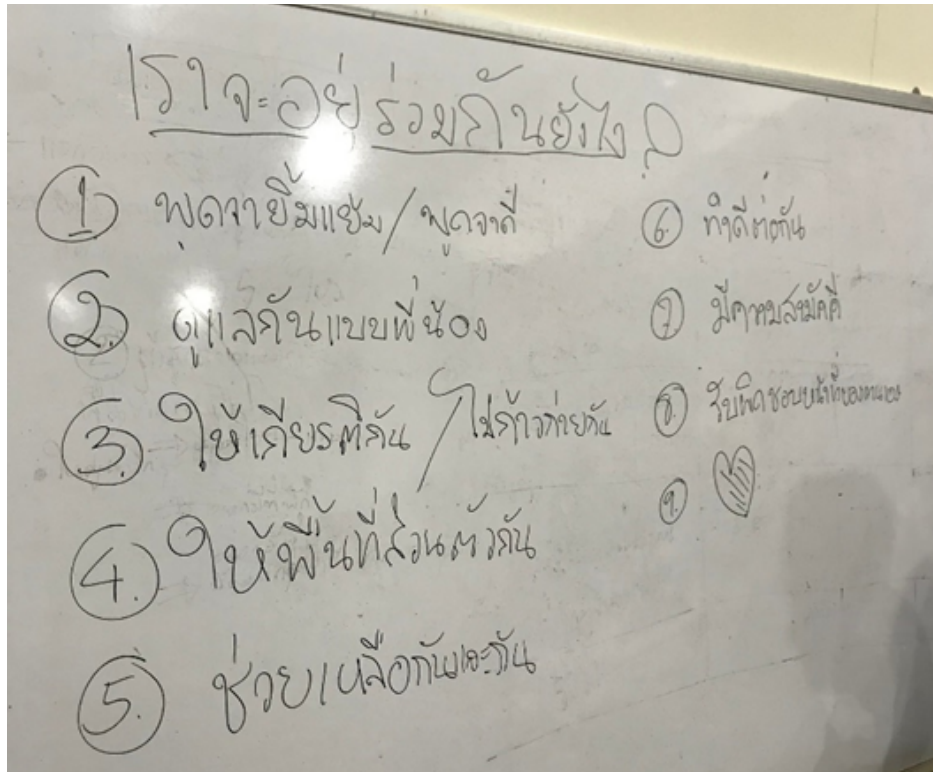 เราจะอยู่ร่วมกันยังไง?
1 พูดจายิ้มแย้ม / พูดจาดี
2. ดูแลกันแบบพี่น้อง
3. ให้เกียรติกัน / ไม่ก้าวก่ายกัน
4. ให้พื้นที่ส่วนตัวกัน
5. ช่วยเหลือกันและกัน
6. ทำดีต่อกัน
7 มีความสามัคคี
8. รับผิดชอบหน้าที่ของตนเอง
9. ♥